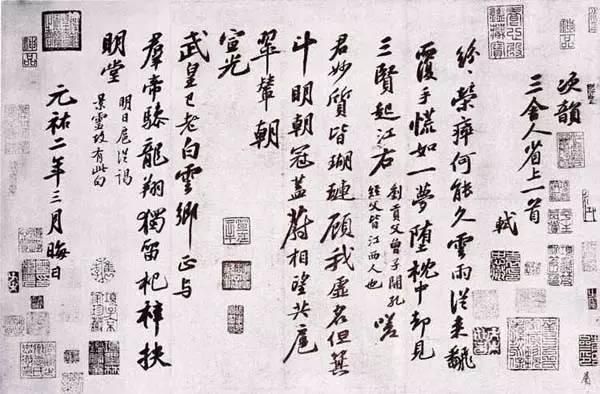 次韻
三舍人省上一首
軾
紛〻榮瘁何能久雲雨從來翻
覆手慌如一夢墮枕中却見
三賢起江右
劉貢父曾子開孔
經父皆江西人也
嗟
君妙質皆瑚璉顧我虛名但箕
斗明朝冠蓋蔚相望共扈
翠輦朝
宣光
武皇已老白雲鄉正與
羣帝驂龍翔獨留杞梓扶
明堂
明日扈從謁
景靈故有此句
元祐二年三月晦日